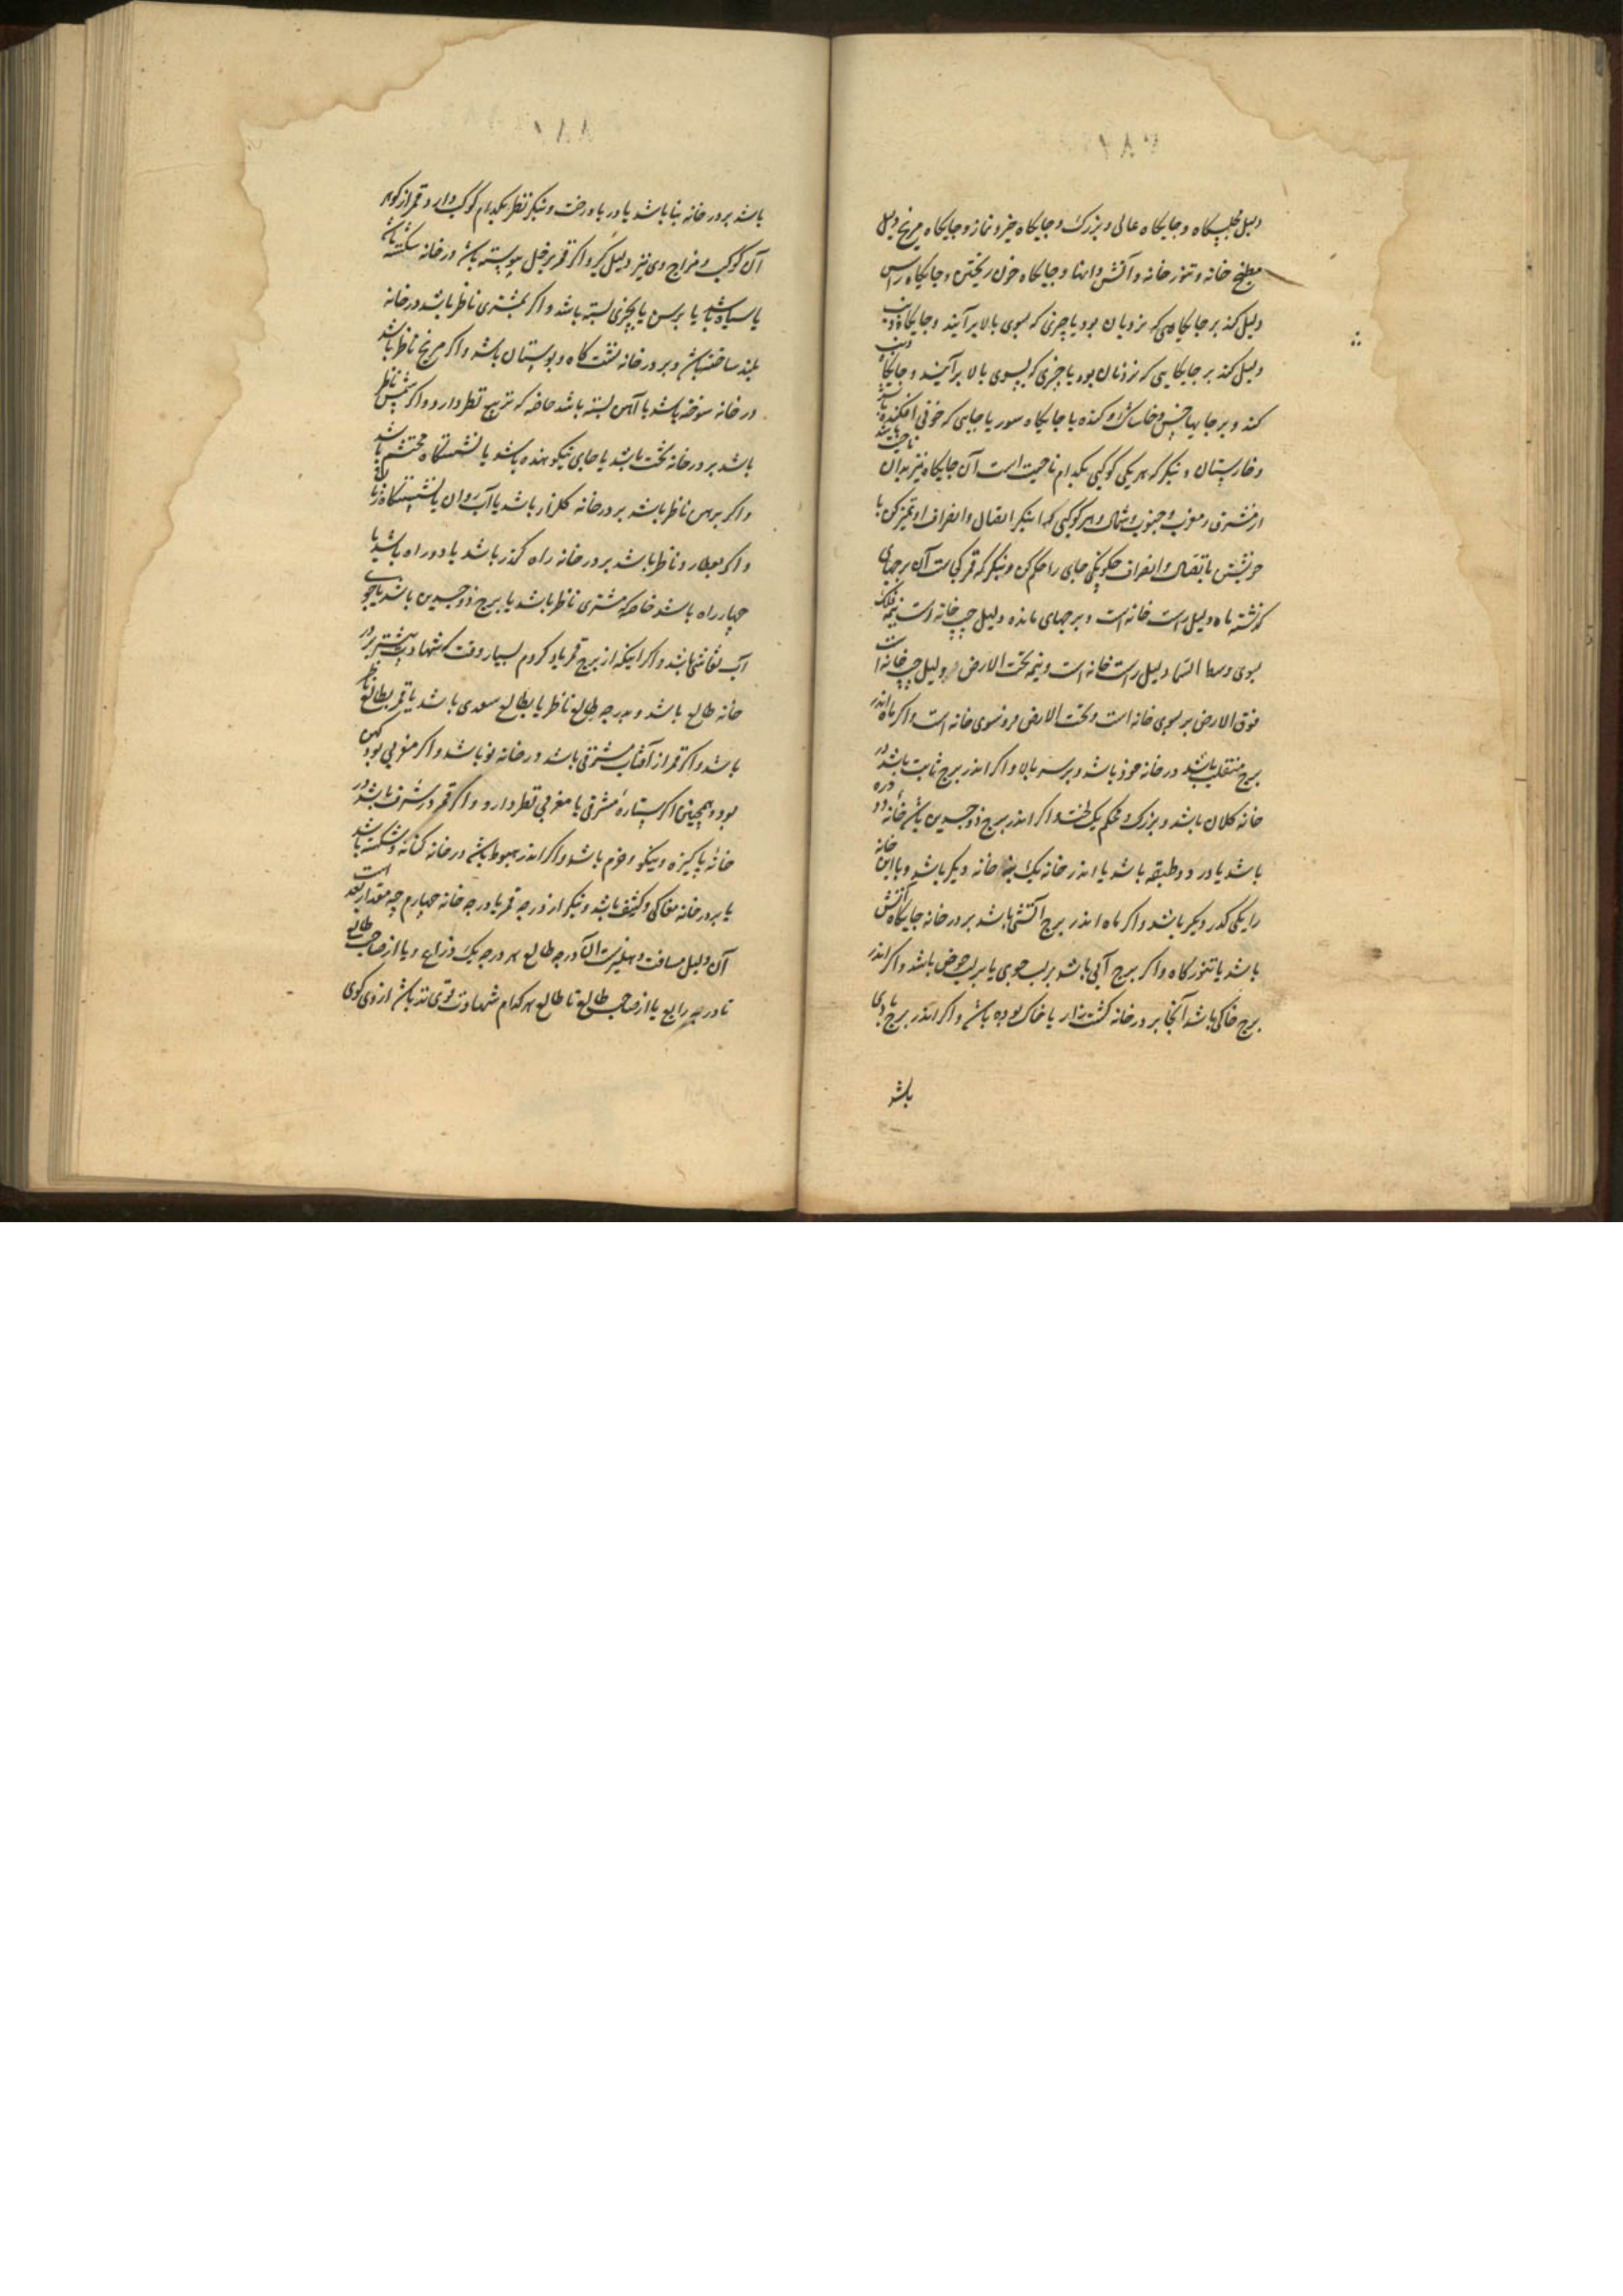 دلیل مجلسگاه و جایگاه عالی و بزرک و جایگاه خیر و نماز و جایگاه مریخ دلیل
مطبخ خانه و تنور خانه و آتش دانها و جایگاه خون ریختن و جایگاه راس
دلیل کند بر جایگاهی که نردبان بود یا چیزی که بسوی بالا برآیند و جایگاه ذنب
دلیل کند بر جایگاهی که نردبان بود یا چیزی که بسوی بالا برآیند و جایگاه ذنب
کند و بر جایها خس و خاشاک و کنده یا جایگاه سور یا جایی که خوفی افکنده باشد
و خارستان و نیکر که هر یکی کوکبی بکدام ناحیت است آن جایگاه نیز بدان ناحیت باشد
از مشرق و مغرب و جنوب و شمال و هر کوکبی که اینکر اتصال و انصراف او تمیز کن با
خویشتن باتصال و انصراف حکونکی جای را حکم کن و نیکر که قمر کجاست آن برجهای
گذشته ماه دلیل راست خانه است و برجهای مانده دلیل چپ خانه است نیمه فلک
بسوی وسط السما دلیل راست خانه است و نیمه تحت الارض دلیل چپ خانه است
فوق الارض بر سوی خانه است و تحت الارض فرو سوی خانه است و اکر ماه اندر
برج منقلب باشد در خانه خود باشد و بر سر بالا و اکر اندر برج ثابت باشد در
خانه کلان باشد و بزرک و محکم یک لخت و اکر اندر برج ذوجسدین باشد خانه دو دره
باشد یا در دو طبقه باشد یا اندر خانه یک خانه دیکر باشد و یا این خانه
را یکی کدر دیکر باشد و اکر ماه اندر برج آتشی باشد بر در خانه جایگاه آتش
باشد یا تنورکاه و اکر برج آبی باشد بر لب جوی یا بر لب حوض باشد و اکر اندر
برج خاکی باشد آنجا بر در خانه کشت زار یا خاک توده باشد و اکر اندر برج بادی
باشد
باشد بر در خانه بنا باشد یا در یا درخت و نیکر نظر بکدام کوکب دارد قمر از کوهر
آن کوکب و مزاج وی نیز دلیل کیر و اکر قمر بزحل پیوسته باشد در خانه شکسته باشد
یا سیاه باشد یا برسن یا بچیزی بسته باشد و اکر بمشتری ناظر باشد در خانه
بلند ساخته باشد و بر در خانه نشست کاه و بوستان باشد و اکر مریخ ناظر باشد
در خانه سوخته باشد یا آهن بسته باشد خاصه که تربیع نظر دارد و اکر شمس ناظر
باشد بر در خانه تخت باشد یا جای نیکو نهنده باشد یا نشستگاه محتشم باشد
و اکر بزهره ناظر باشد بر در خانه کلزار باشد یا آب روان یا نشستگاه زنان
و اکر بعطارد ناظر باشد بر در خانه راه گذر باشد یا دو راه باشد یا
چهار راه باشد خاصه که مشتری ناظر باشد یا برج ذوجسدین باشد یا جوی
آب نقاشیها باشد و اکر اینکه از برج قمر یاد کردم بسیار وقت که شهادت بیشتر بر در
خانه طالع باشد و بدرجه طالع ناظر یا بطالع سعدی باشد یا قمر بطالع ناظر
باشد و اکر قمر از آفتاب مشرقی باشد در خانه نو باشد و اکر مغربی بود کهن
بود و همچنین اکر ستارهٔ مشرقی یا مغربی نظر دارد و اکر قمر در شرف باشد در
خانهٔ پاکیزه و نیکو و خرم باشد و اکر اندر هبوط باشد در خانه کهنه و شکسته باشد
یا بر در خانه مغاکی و کثیف باشد و نیکر از درجه قمر یا درجه خانه چهارم چه مقدار بعد است
آن دلیل مسافت دهلیزست از درجه طالع هر درجه یک ذراع و یا از صاحب طالع
تا درجه رابع یا از صاحب طالع تا طالع هر کدام شهادت قوی تر باشد از وی کوی